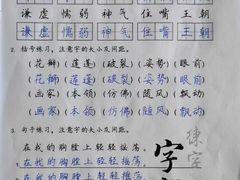 谦虚 懦弱 神气 住嘴 王朝
谦虚 懦弱 神气 住嘴 王朝
2. 括号练习，注意字的大小及间距。
(花瓣)(莲蓬)(破裂)(姿势)(眼前)
(花瓣)(莲蓬)(破裂)(姿势)(眼前)
(画家)(本领)(仿佛)(随风)(飘动)
(画家)(本领)(仿佛)(随风)(飘动)
3. 句子练习，注意字的大小及间距。
在我的胸膛上轻轻摇荡。
在我的胸膛上轻轻摇荡。
练字